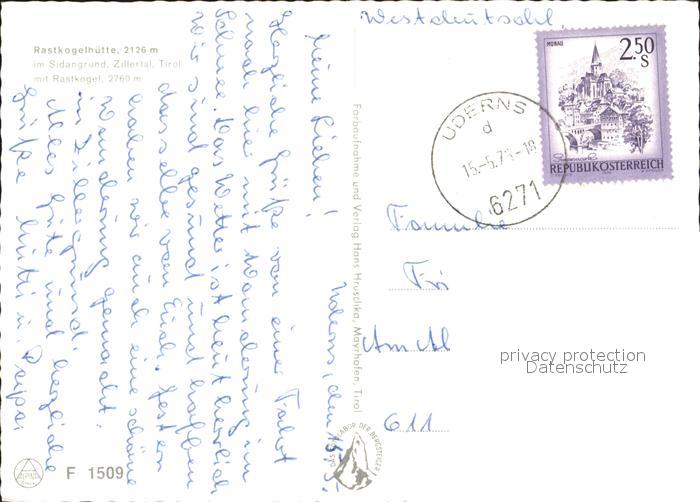 Rastkogelhütte, 2126 m
im Sidangrund, Zillertal, Tirol
mit Rastkogel, 2760 m
Uderns, den 15. 5.
Meine Lieben!
Herzliche Grüße von einer Fahrt
nach hier mit Wanderung im
Schnee. Das Wetter ist heut herrlich
Wir sind gesund und hoffen
dasselbe von Euch. Gestern
haben wir auch eine schöne
Wanderung gemacht.
in Zillergrund.
Alles Gute und herzliche
Grüße Mutti u. Papa
F 1509
Farbaufnahme und Verlag Hans Hruschka, Mayrhofen, Tirol
DAS LABOR DER BERGSTEIGER
Westdeutschl.
MURAU
2.50
S
REPUBLIK ÖSTERREICH
UDERNS
d
6271
Familie
Fri
Am Al
611
privacy protection
Datenschutz